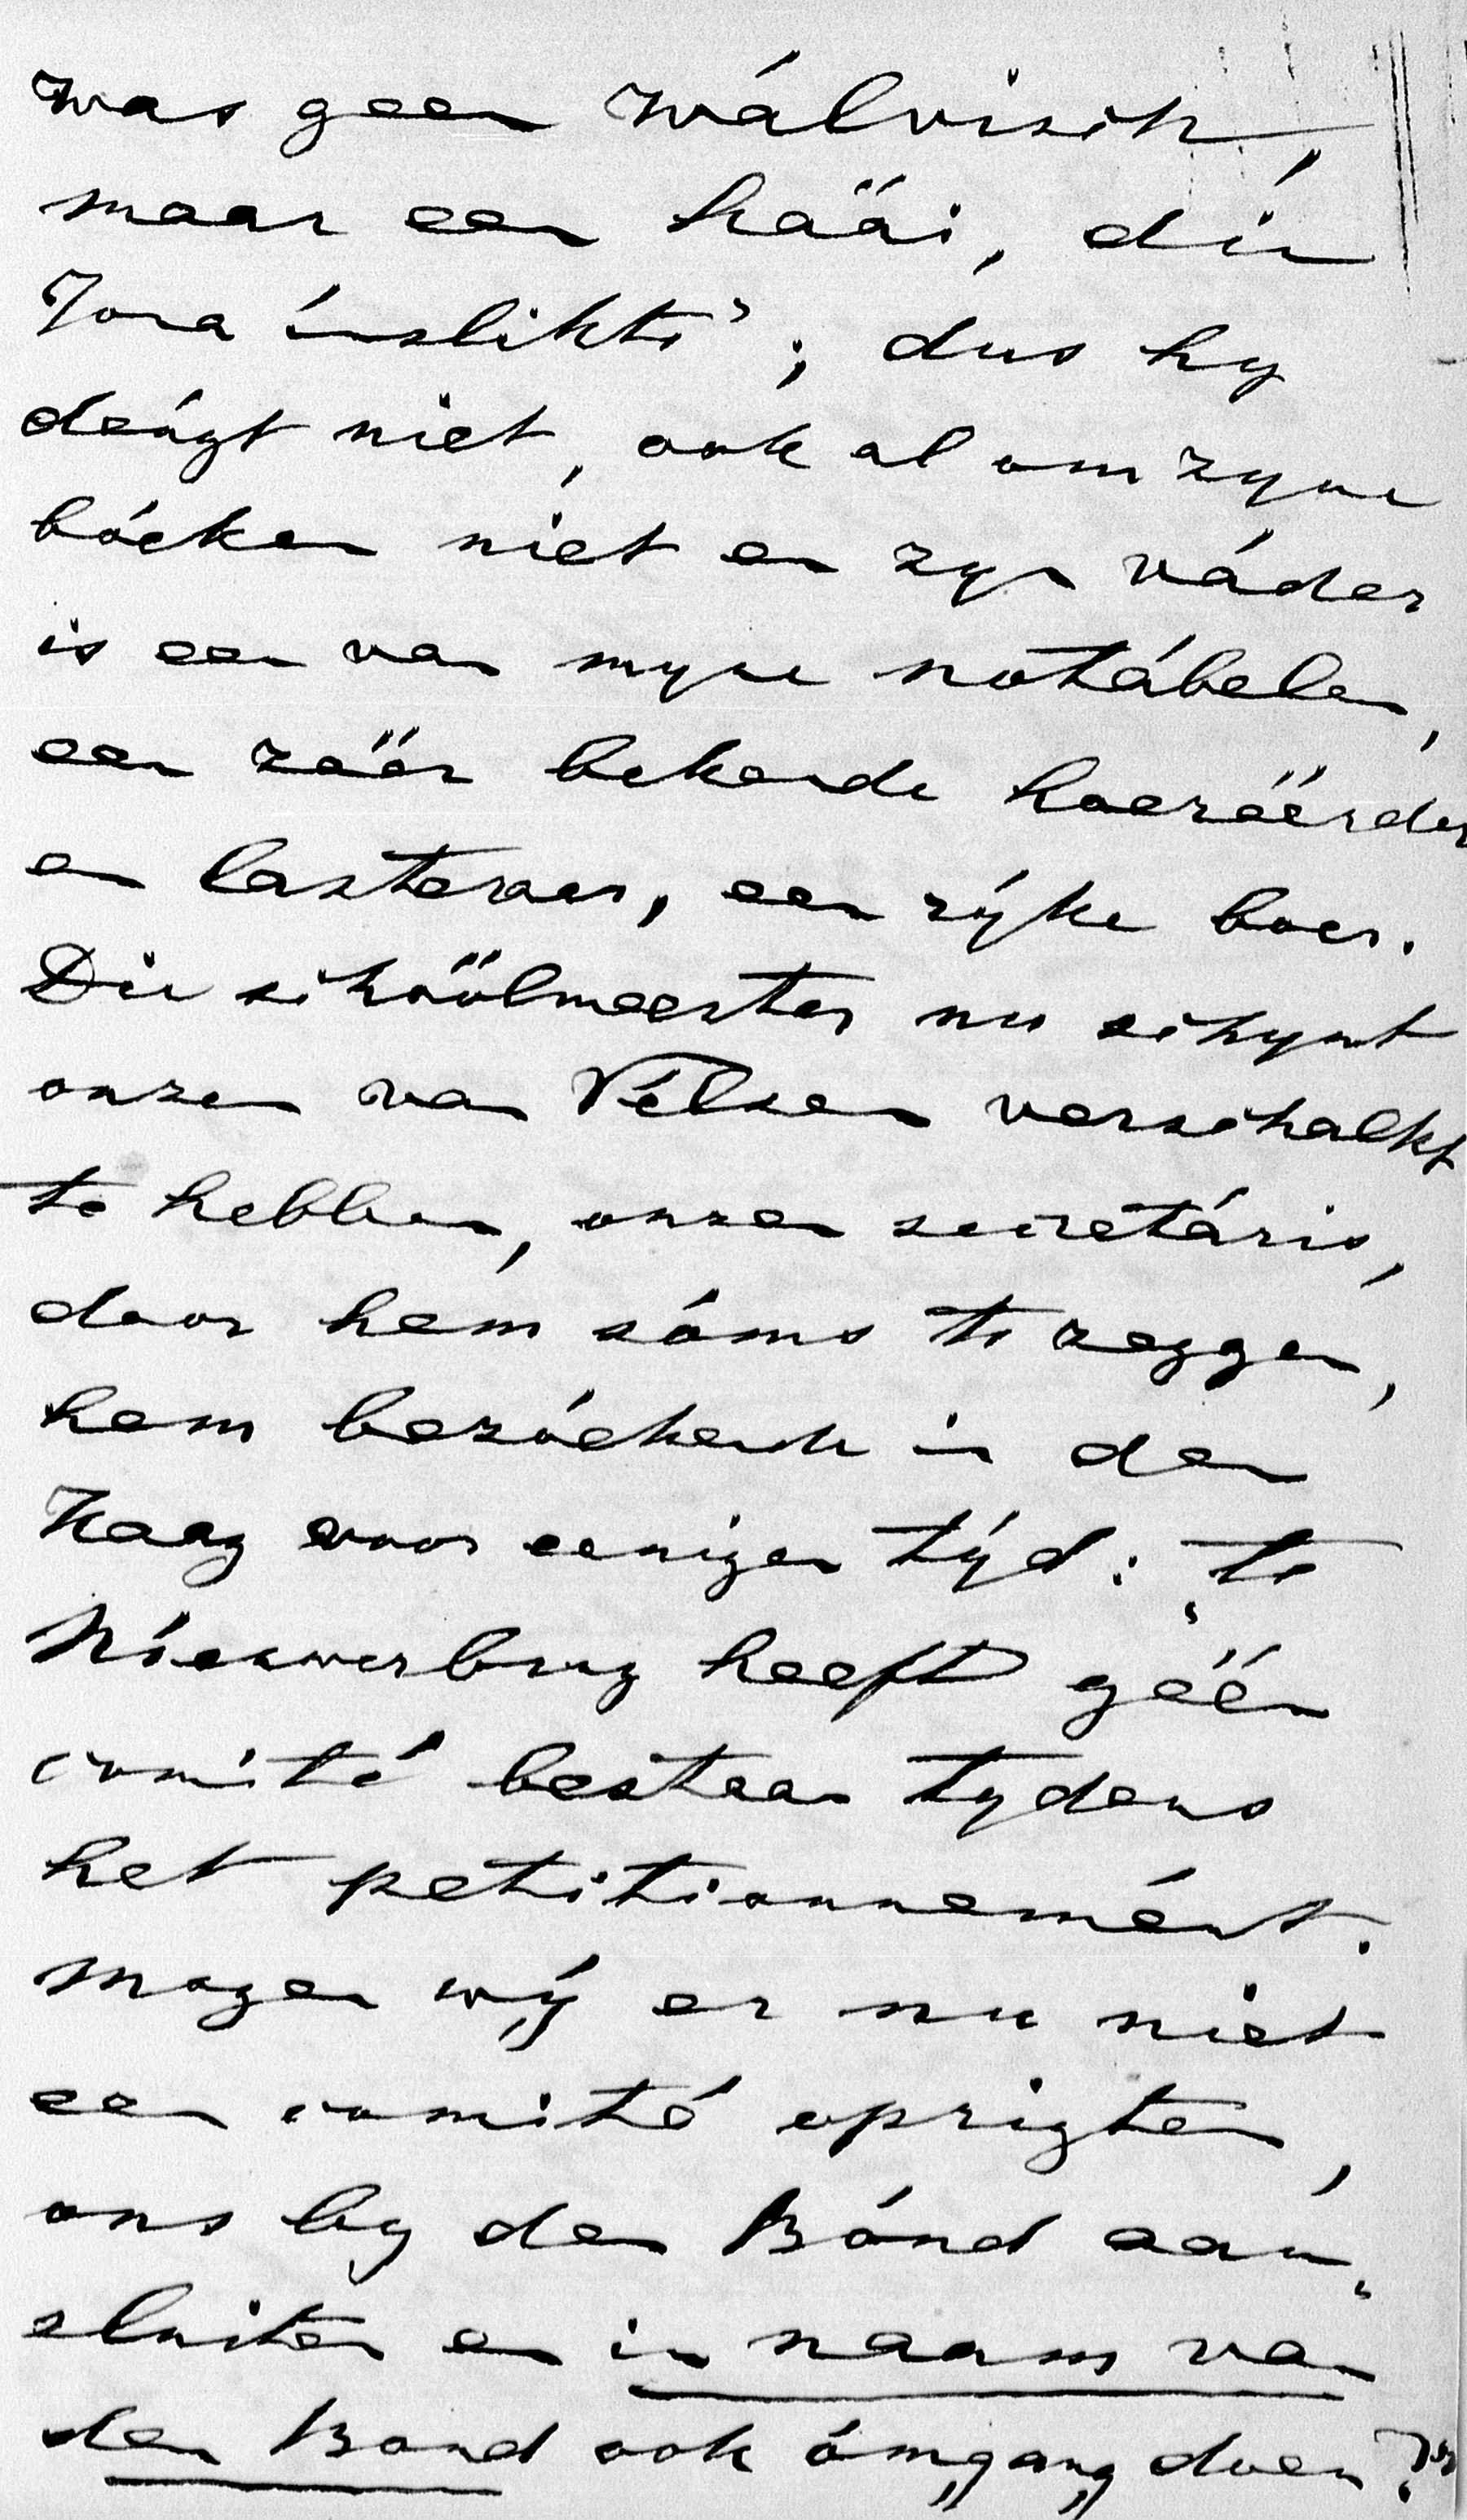 was geen wálvisch,
maar een hääi, die
Jona ínslikte"; dus hy
deúgt niet, ook al om zyne
bóeken niet en zyn váder
is een van myne notábelen,
een zëër bekende
en lasteraar, een rýke boer.
Die schöölmeester nu schynt
onzen van Vélsen verschalkt
te hebben, onzen secretáris,
door hem sóms te zeggen,
hem bezóekende in den
Haag voor eenigen týd: „te
Níeuwerbrug heeft gëën
comité bestaan tydens
het petitionnemént.
Mogen wÿ er nu niet
een comité oprigten,
ons by den Bónd aan„
sluiten en in naam van
den Bond ook ómgang doen?"